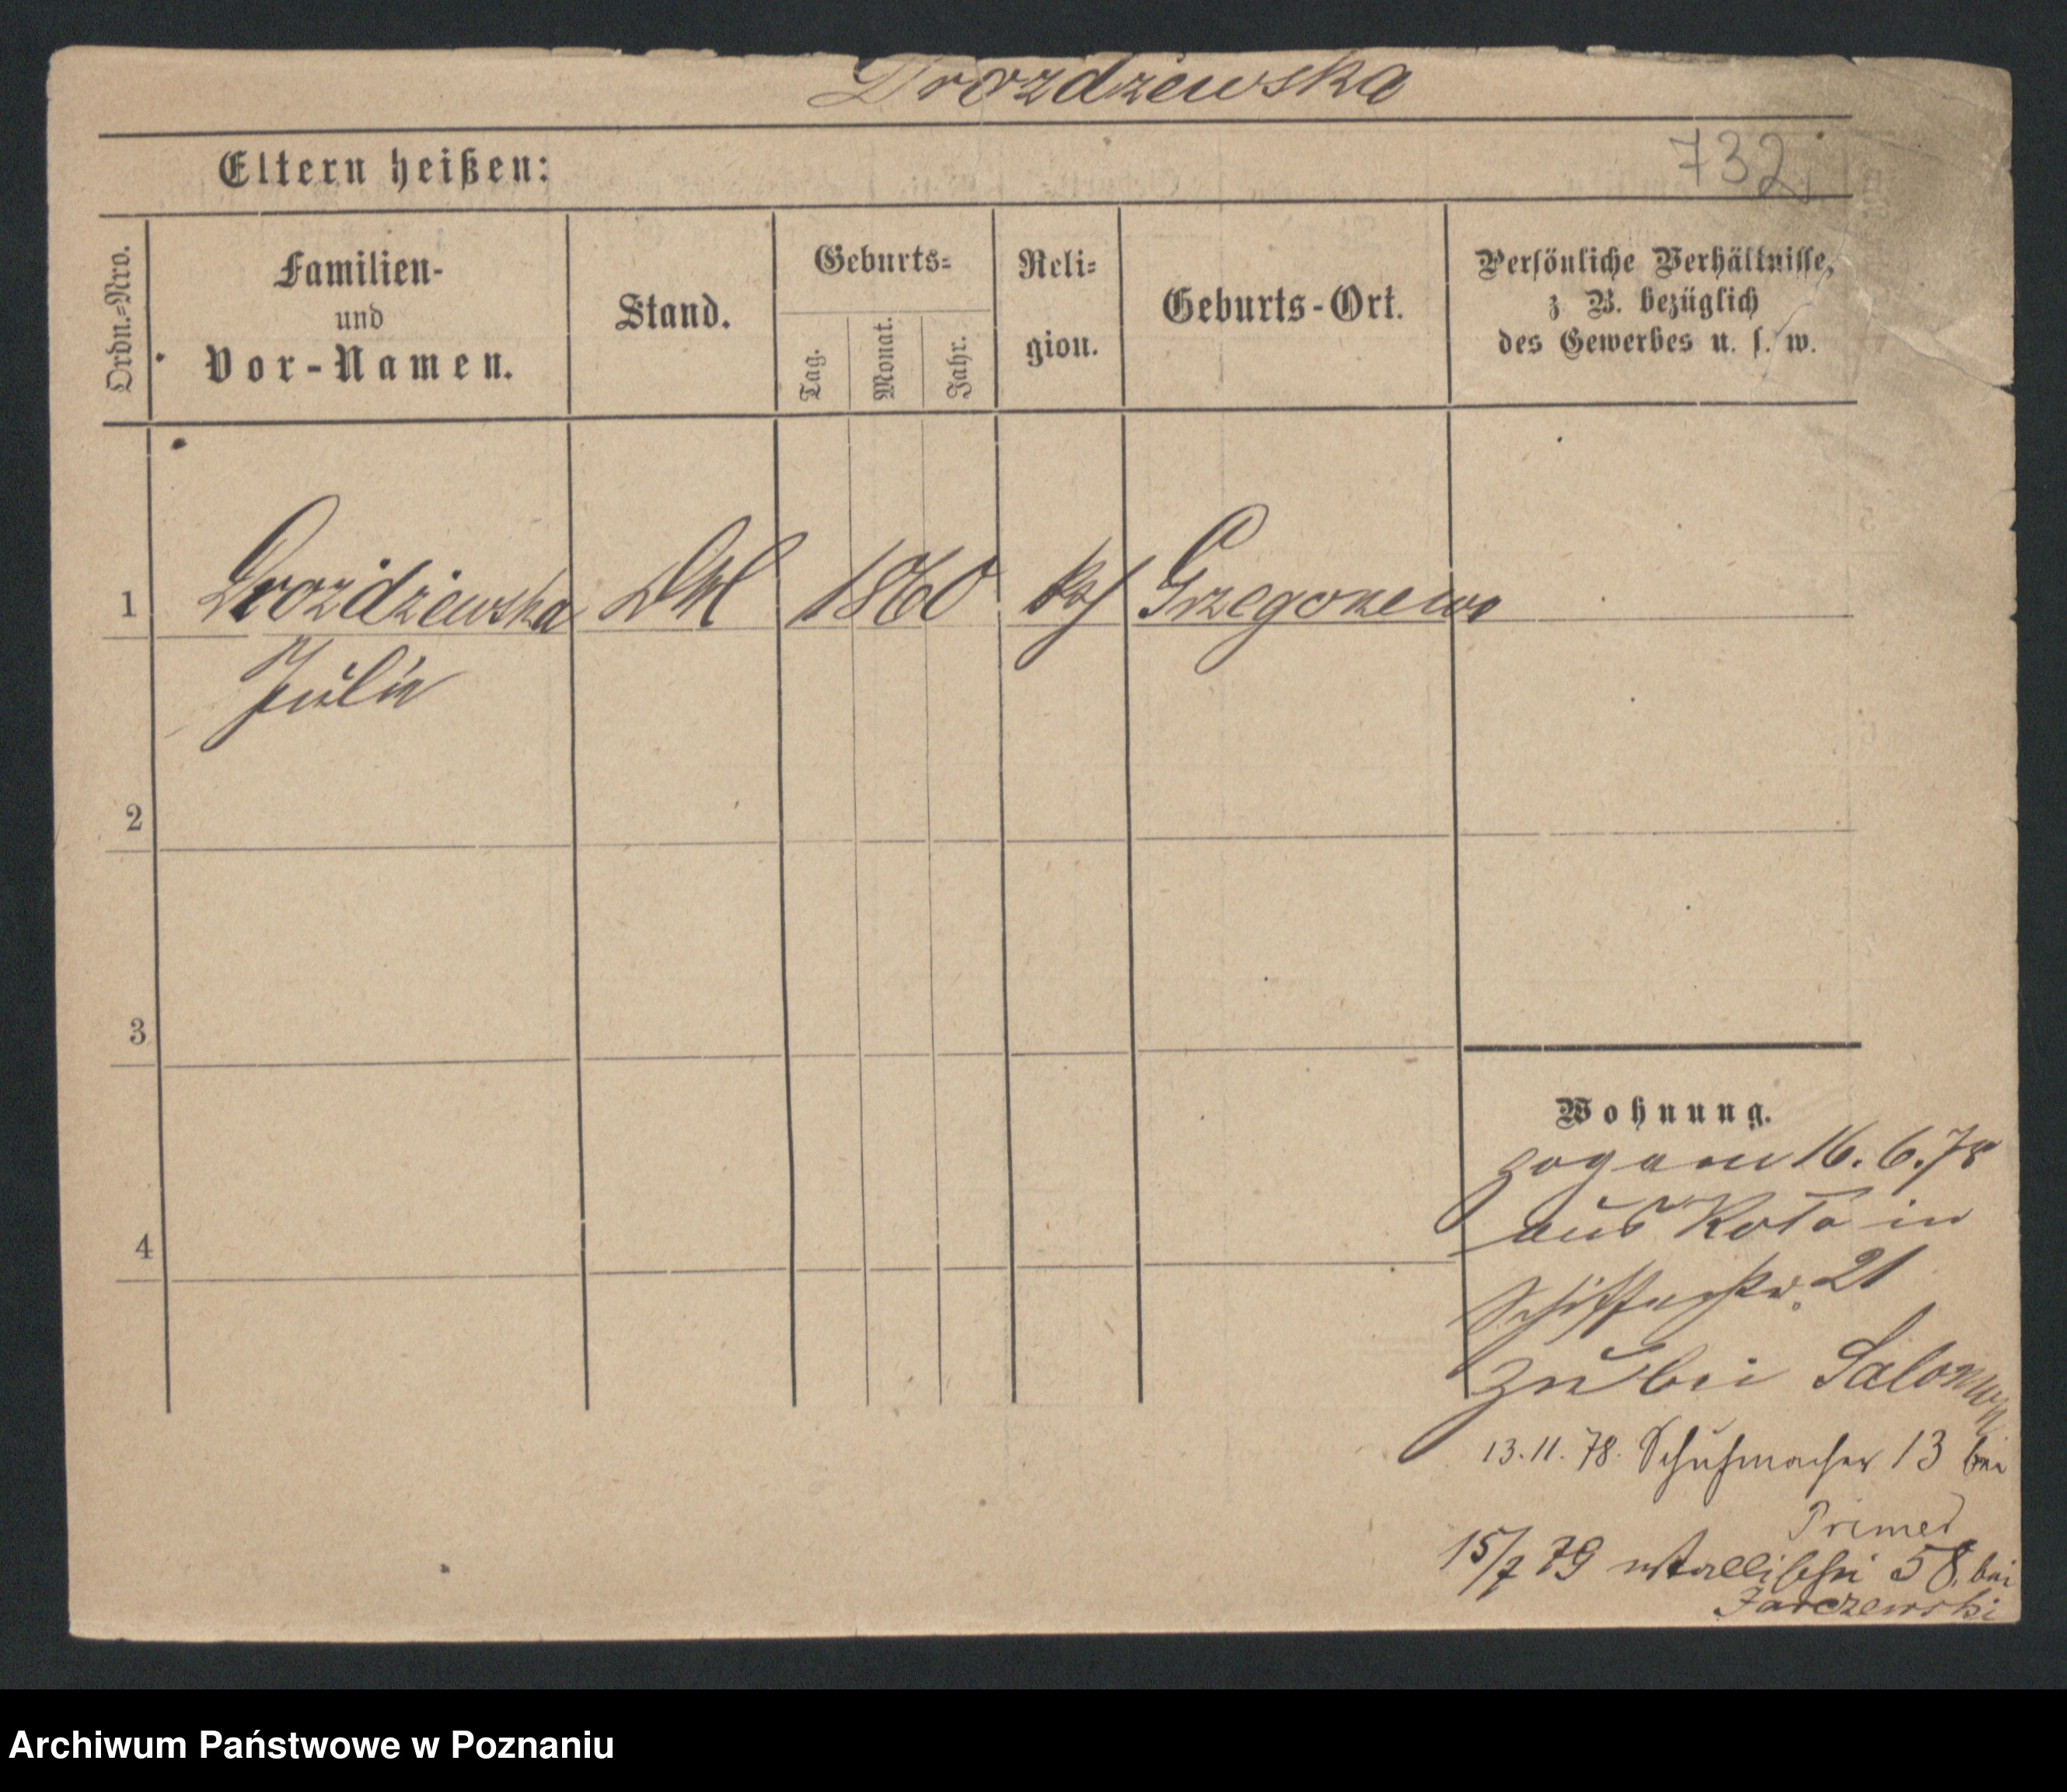 Drozdzewska
732
Eltern heißen:
Ordn.=Nro.
Familien-
und
Vor-Namen.
Stand.
Geburts=
Tag.
Monat.
Jahr.
Reli=
gion.
Geburts-Ort.
Persönliche Verhältnisse,
z B. bezüglich
des Gewerbes u. s. w.
1
Drozdżewska
1860
Julie
2
3
4
Wohnung.
zog am 16. 6. 78
aus in
Schifferstr. 21
zu bei Salomon
13. 11. 78. Schuhmacher 13 bei
Primer
15/7 79 Wallischei 58. bei
Jarczewski
Archiwum Państwowe w Poznaniu